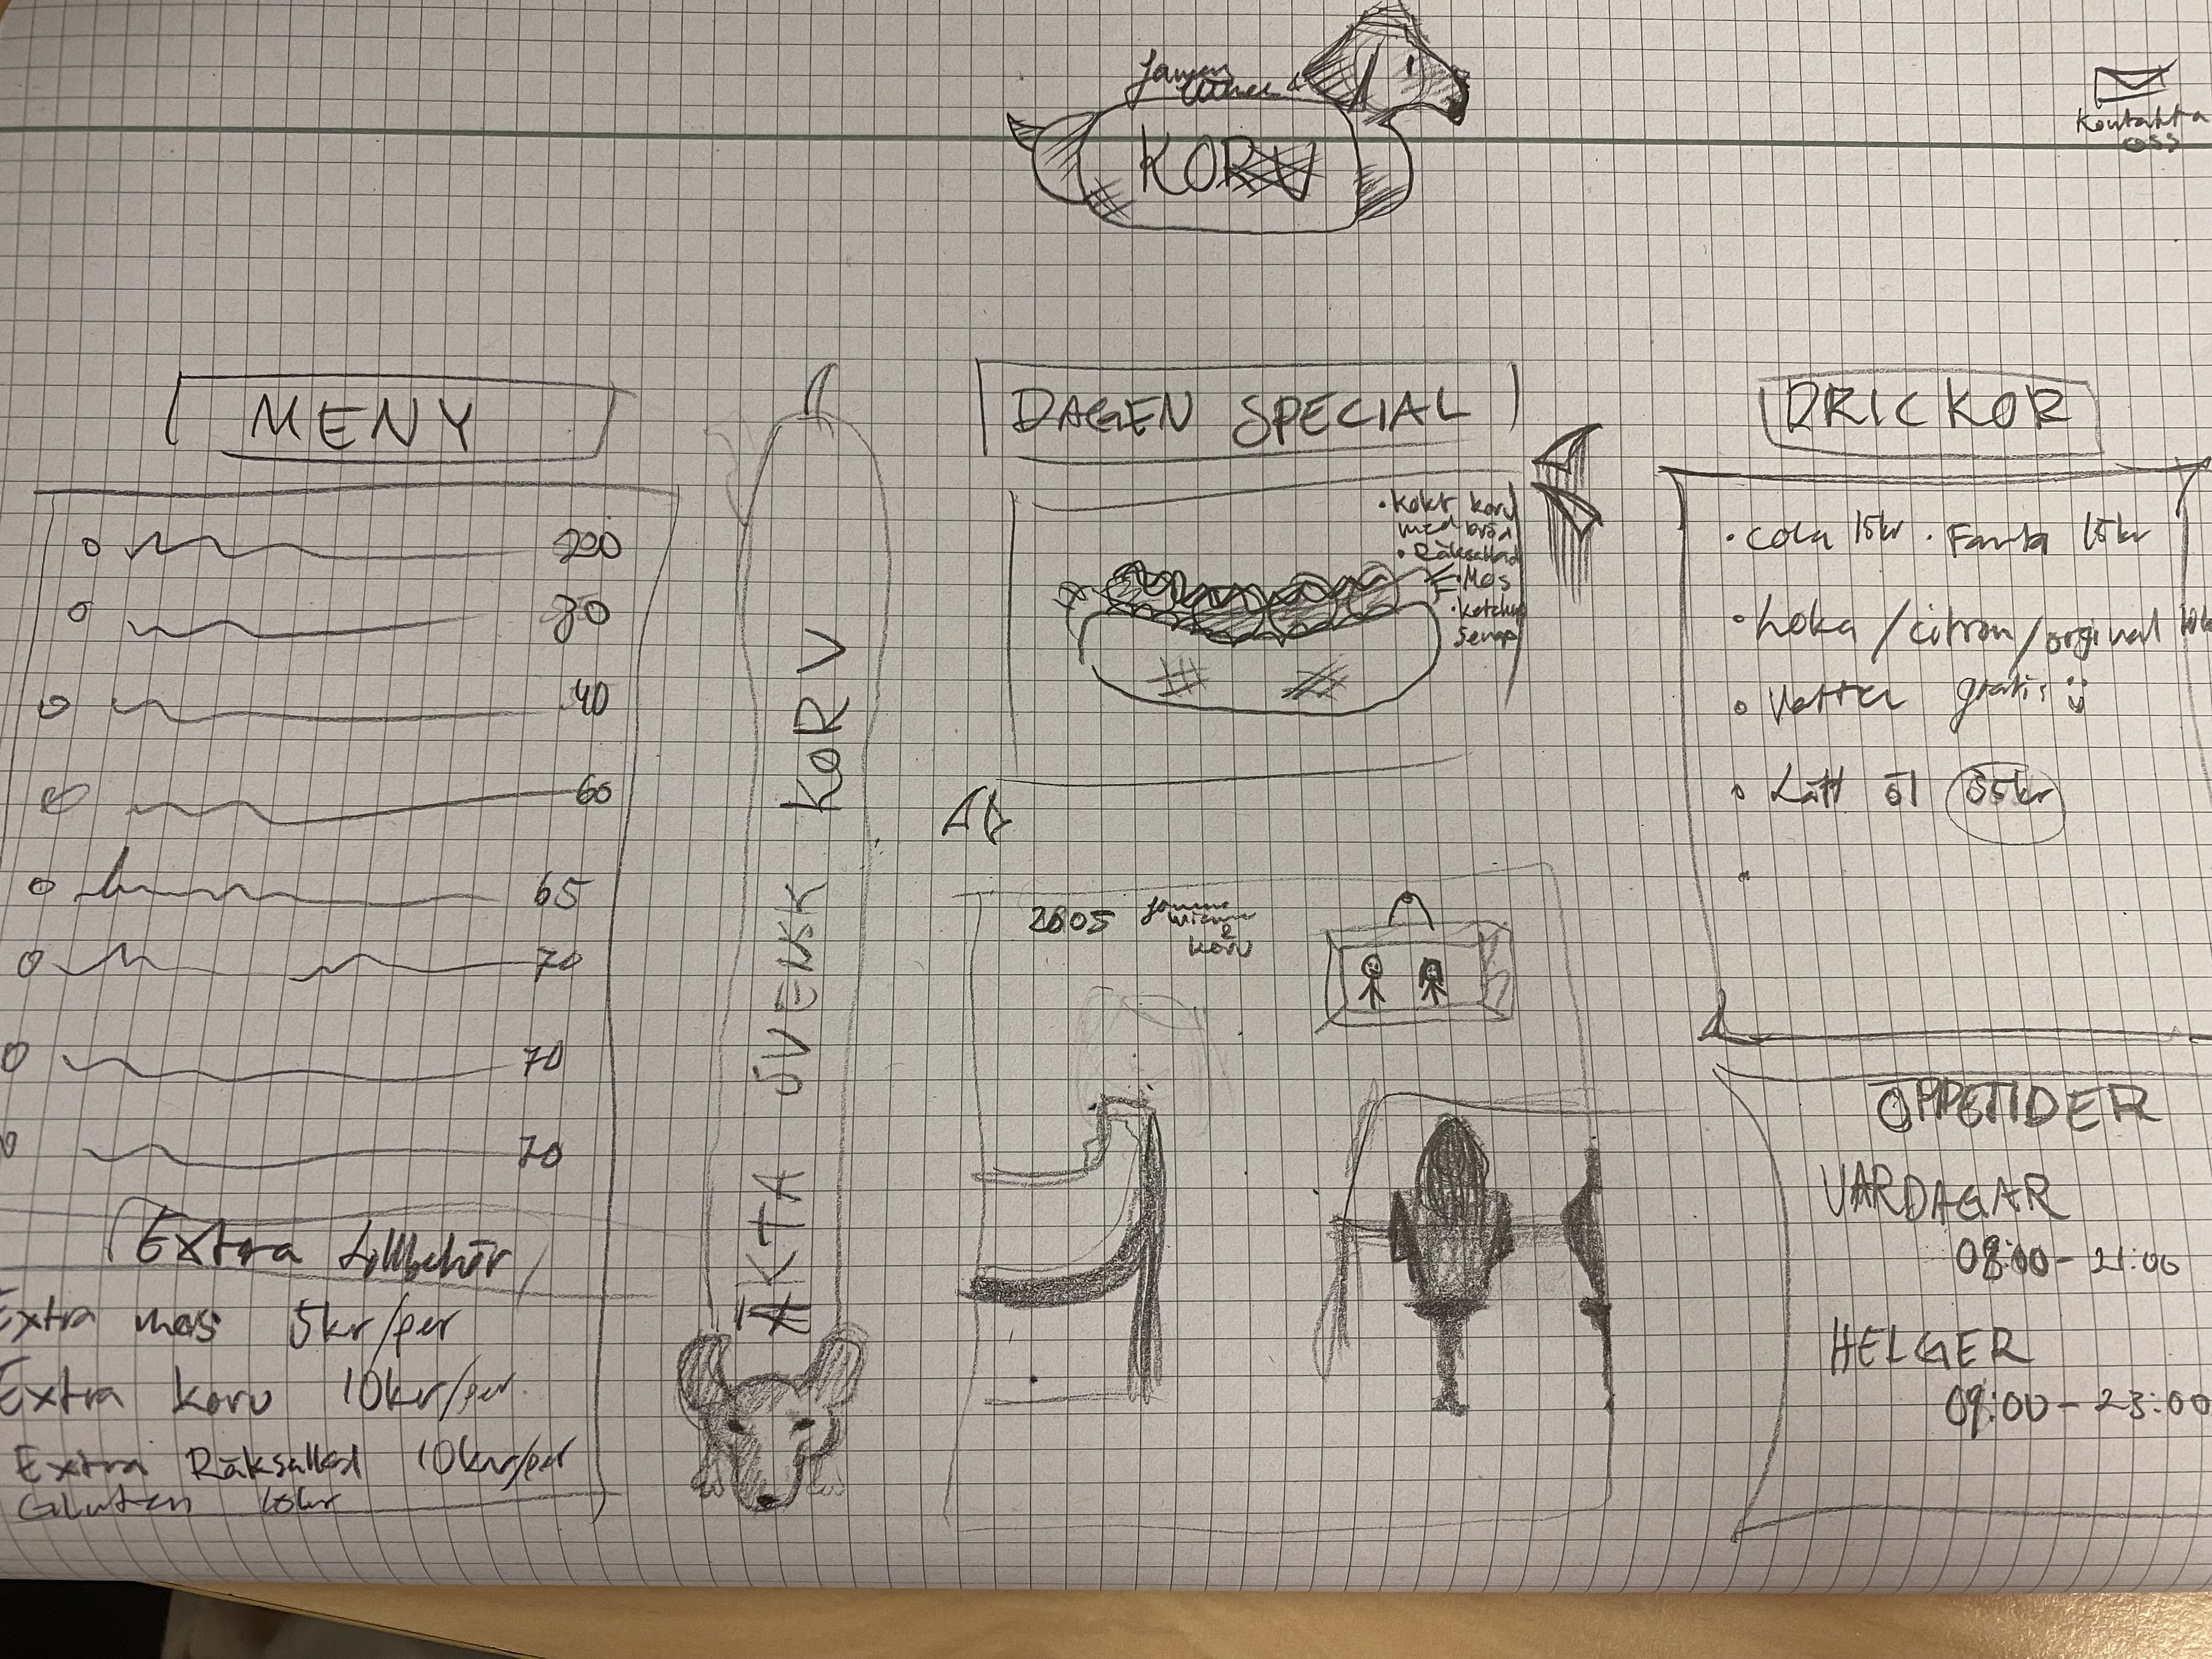 KORV
Kontakta
oss
MENY
200
80
40
60
65
70
70
70
Extra tillbehör
Extra mos 5kr/per
Extra korv 10kr/per
Extra Räksallad 10kr/per
Gluten 10kr
ÄKTA SVENSK KORV
DAGEN SPECIAL
• Kokt korv
med bröd
• Räksallad
• Mos
• Ketchup
Senap
2005
Korv
DRICKOR
• Cola 15kr • Fanta 15kr
• Loka / citron / orginal
• Vatten gratis
• Lätt öl
ÖPPETIDER
VARDAGAR
08:00 - 21:00
HELGER
09:00 - 23:00